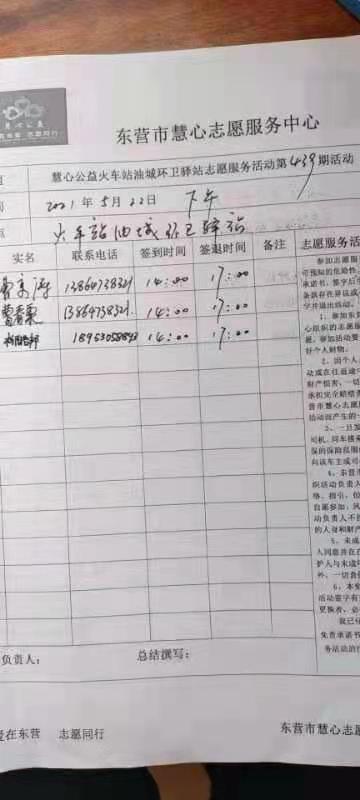 东营市慧心志愿服务中心
慧心公益火车站油城环卫驿站志愿服务活动第439期活动
间 2021年5月22日 下午
点 火车站油城环卫驿站
实名 联系电话 签到时间 签退时间 备注 志愿服务活
13864738321 14:00 17:00
13864738321 14:00 17:00
14:00 17:00
参加志愿服
可预知的危险性
承诺书，签字后
条款存在异议或
字并退出活动。
1、参加东营
心组织的志愿服
愿，参加活动要
好个人财物。
2、因个人
动或在往返途中
财产损害，一切
承担完全赔偿责
营市慧心志愿服
活动而产生的一
3、一旦发
司机、同车搭乘
保的保险范围
向该车主或司
4、东营市
织活动负责人
络、指引，但
自愿参加，风
动负责人不
的人身和财产
5、未成
人同意并在
护人与未成年
外，一切责任
6、本免
活动签字有
更换者，必
我已仔
免责承诺书
务活动的
负责人： 总结撰写：
爱在东营 志愿同行 东营市慧心志愿